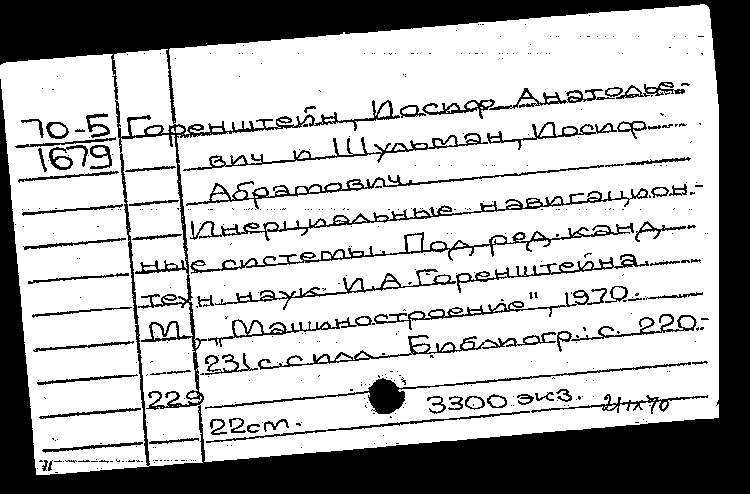 70-Б Горенштейн, Иосиф Анатолье-
1679 вич и Шульман, Иосиф
Абрамович.
Инерциальные навигацион-
ные системы. Под ред. канд.
техн. наук И.А.Горенштейна.
М., „Машиностроение", 1970.
231 с. с илл. Библиогр.: с. 220-
229
22 cm. 3300 экз. 21 IX 70